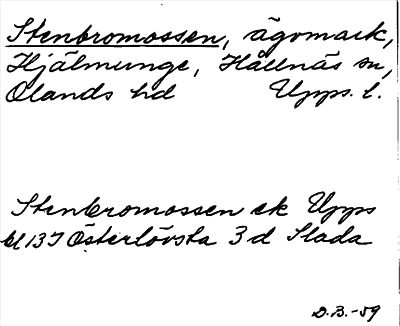 Stenbromossen, ägomark,
Hjälmunge, Hållnäs sn,
Olands hd Upps. l.
Stenbromossen ek Upps
bl 137 Österlövsta 3d Slada
D.B.-59